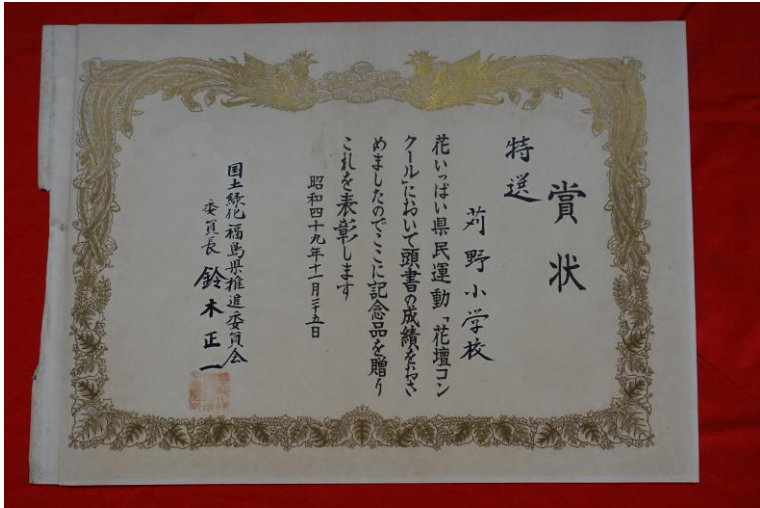 賞状
特選
苅野小学校
花いっぱい県民運動「花壇コン
クール」において頭書の成績をおさ
めましたのでここに記念品を贈り
これを表彰します
昭和四十九年十一月二十五日
国土緑化福島県推進委員会
委員長 鈴木正一